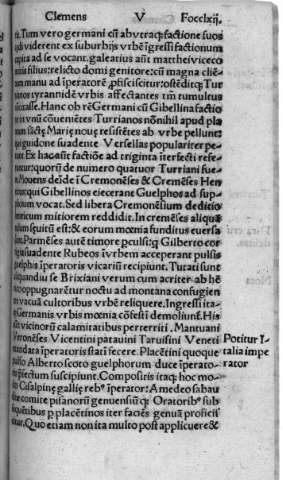 Clemens V Fo cclxij.
rit. Tum vero germani cū ab vtraq; factione suos
ǫdi viderent ex suburbijs vrbē īgressi factionum
capita ad se vocant. galeatius aūt matthei viceco
mitis filius: relicto domi genitore: cū magna clië
tum manu ad īperatorē ꝓficiscitur: ostēditq; Tur
nos tyrannidē vrbis affectantes tm̄ tumultus
citasse. Hanc ob rē Germani cū Gibellina factio
in vnū cōueniētes Turrianos nōnihil apud pla
sctę Marię nouę resistētes ab vrbe pellunt:
qui guidone suadente Versellas populariter pe
tunt. Ex hac aūt factiōe ad triginta iterfecti refe
runtur: quorū de numero quatuor Turriani fue
re. Mouens deīde ī Cremonēses & Cremēses Hen
ricus qui Gibellinos eiecerant Guelphos ad sup
plicium vocat. Sed libera Cremonēsium deditio
henricum mitiorem reddidit. In cremēses aliquā
tulum sęuitū est: & eorum mœnia funditus euersa
sunt. Parmēses autē timore pculsi: q; Gilberto cor
rigia suadente Rubeos ī vrbem acceperant pulsis
guelphis īperatoris vicariū recipiunt. Tutati sunt
aliquandiu se Brixiani verum cum acriter ab hē
rico oppugnarētur noctu ad montana confugien
tes vacuā cultoribus vrbē reliquere. Ingressi ita
Germanis vrbis mœnia cōfesti demoliunt̄. His
vicinorū calamitatibus perterriti. Mantuani
Veronēses Vicentini patauini Taruisini Veneti
mandata īperatoris statī fecere. Placētini quoque
pulso Alberto scoto guelphorum duce īperato
ris pfectum suscipiunt. Compositis itaq; hoc mo
do Cisalpinę gallię reb⁹ īperator: Amedeo sabau
diæ comite pisanorū genuensiū q; Oratorib⁹ sub
sequētibus p placētinos iter faciēs genuā proficis
citur. Quo etiam non ita multo post applicuere &
Potitur I-
talia impe
rator